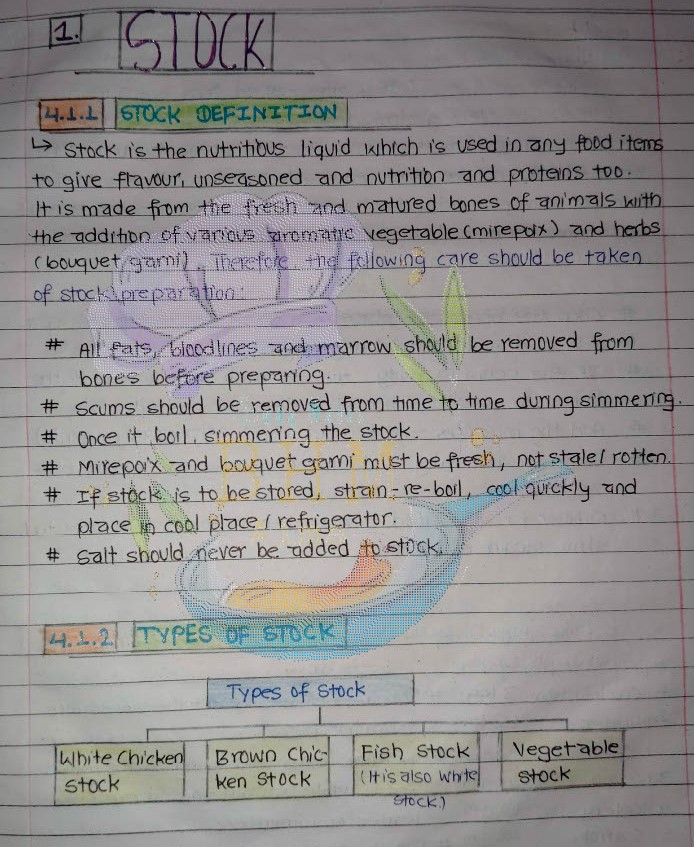 1. STOCK
4.1.1 STOCK DEFINITION
↳ Stock is the nutritious liquid which is used in any food items
to give flavour, unseasoned and nutrition and proteins too.
It is made from the fresh and matured bones of animals with
the addition of various aromatic vegetable (mirepoix) and herbs
(bouquet garni). Therefore, the following care should be taken
of stock preparation:
# All fats, bloodlines and marrow should be removed from
bones before preparing.
# Scums should be removed from time to time during simmering.
# Once it boil, simmering the stock.
# Mirepoix and bouquet garni must be fresh, not stale/rotten.
# If stock is to be stored, strain-re-boil, cool quickly and
place in cool place/refrigerator.
# Salt should never be added to stock.
4.1.2 TYPES OF STOCK
Types of Stock
White Chicken
stock
Brown Chic-
ken Stock
Fish Stock
(It is also White
Stock)
Vegetable
stock